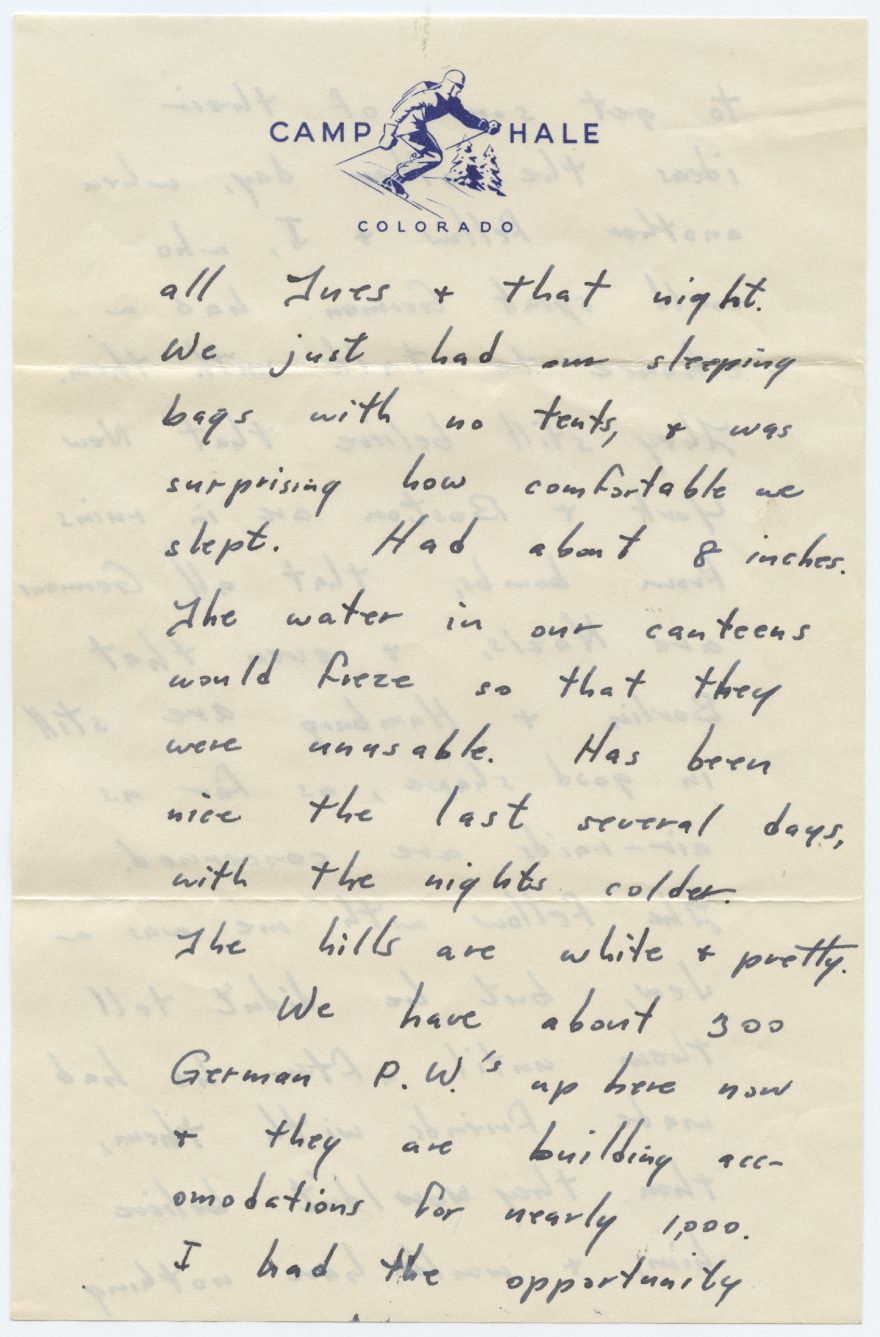 CAMP HALE
COLORADO
all Tues & that night.
We just had our sleeping
bags with no tents, & was
surprising how comfortable we
slept. Had about 8 inches.
The water in our canteens
would freze so that they
were unusable. Has been
nice the last several days,
with the nights colder.
The hills are white & pretty.
We have about 300
German P.W.'s up here now
& they are building acc-
omodations for nearly 1,000.
I had the opportunity